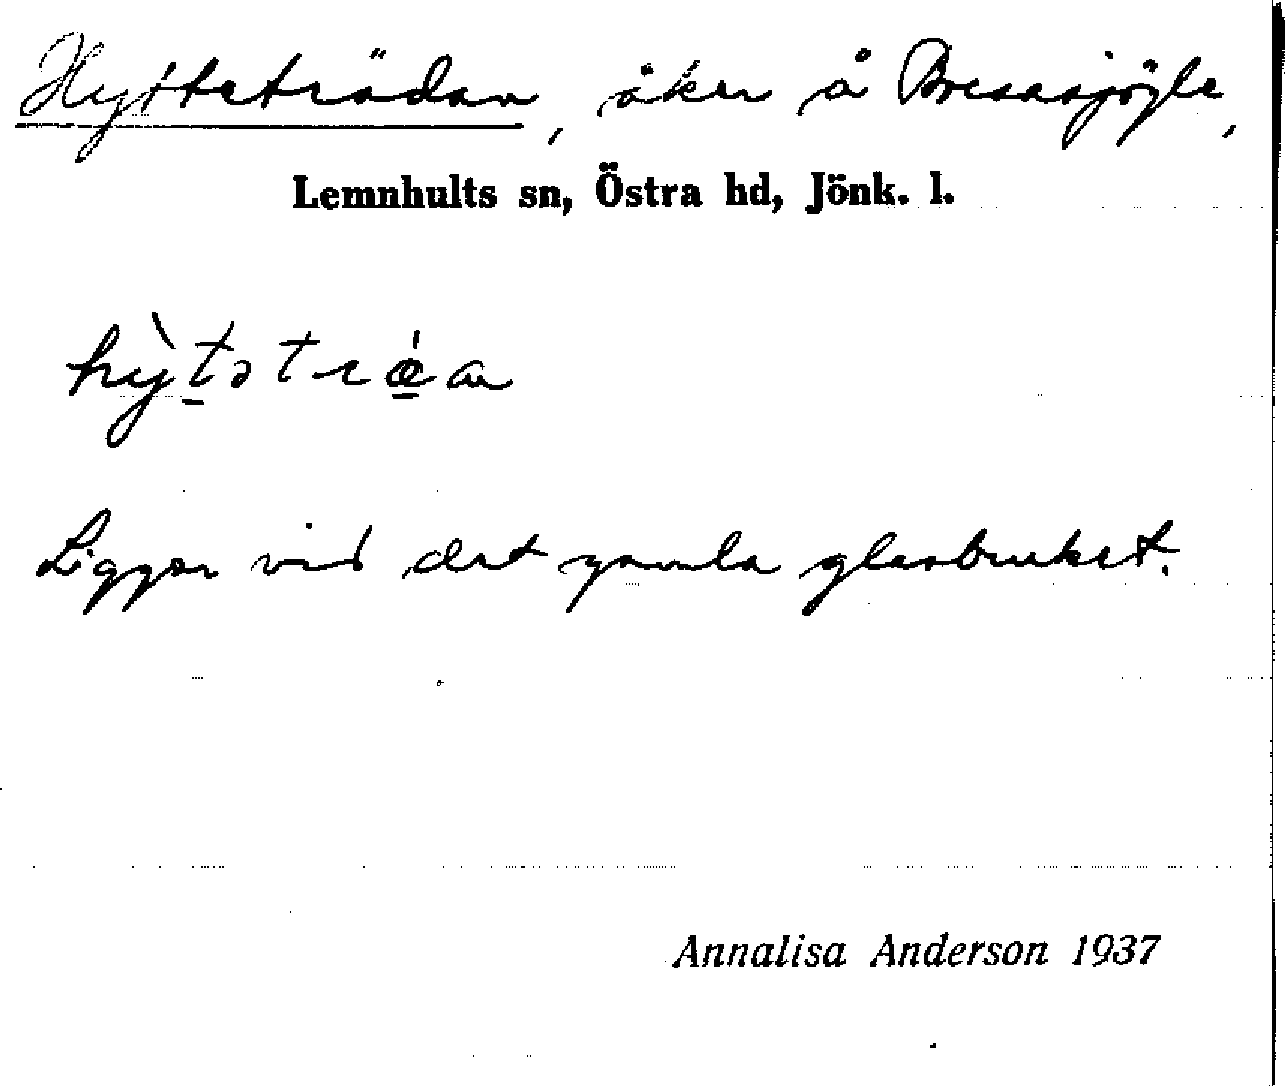 Hytteträdan, åker å Bresasjögle,
Lemnhults sn, Östra hd, Jönk. l.
hy̏tətrǽa
Ligger vid det gamla glasbruket.
Annalisa Anderson 1937